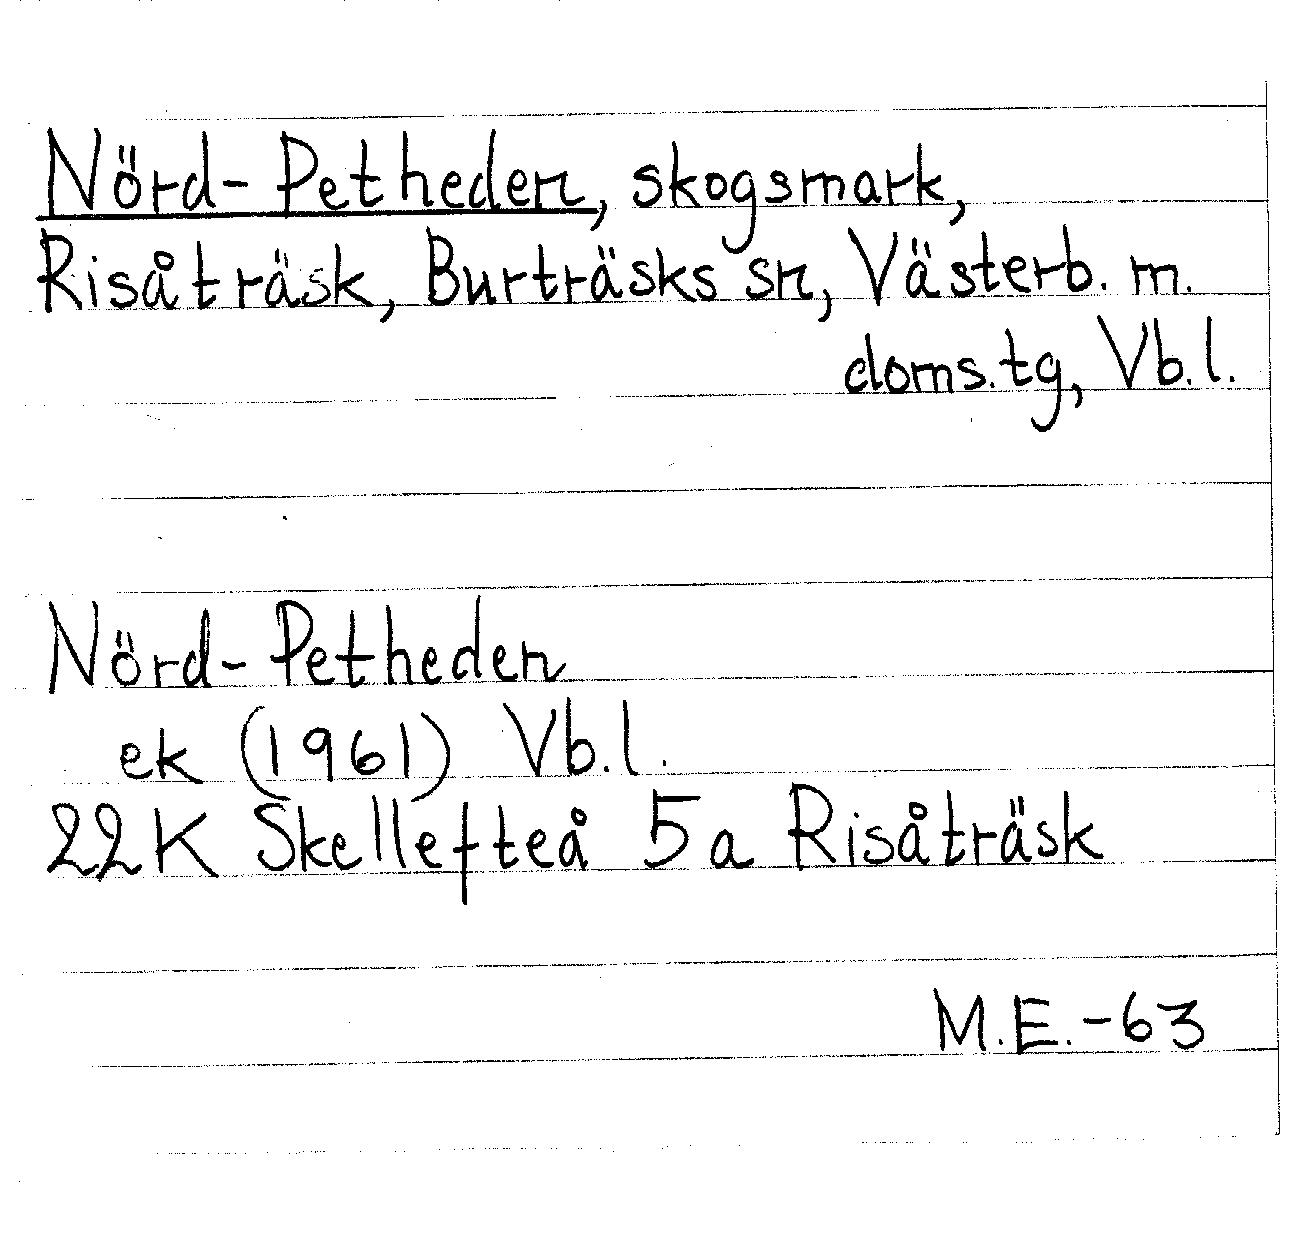 Nörd-Petheden, skogsmark,
Risåträsk, Burträsks sn, Västerb. m.
doms.tg, Vb.l.
Nörd-Petheden
ek (1961) Vb.l.
22K Skellefteå 5a Risåträsk
M.E.-63